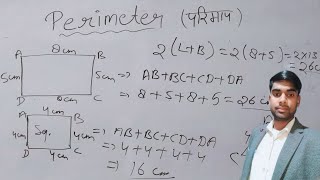 Perimeter (परिमाप)
A 8cm B
5cm 5cm
D 8cm C
2(L+B) = 2(8+5) = 2×13
= 26c
⇒ AB+BC+CD+DA
⇒ 8+5+8+5 = 26 c
A 4cm B
4cm Sq. 4cm
D 4cm C
⇒ AB+BC+CD+DA
⇒ 4+4+4+4
⇒ 16 cm